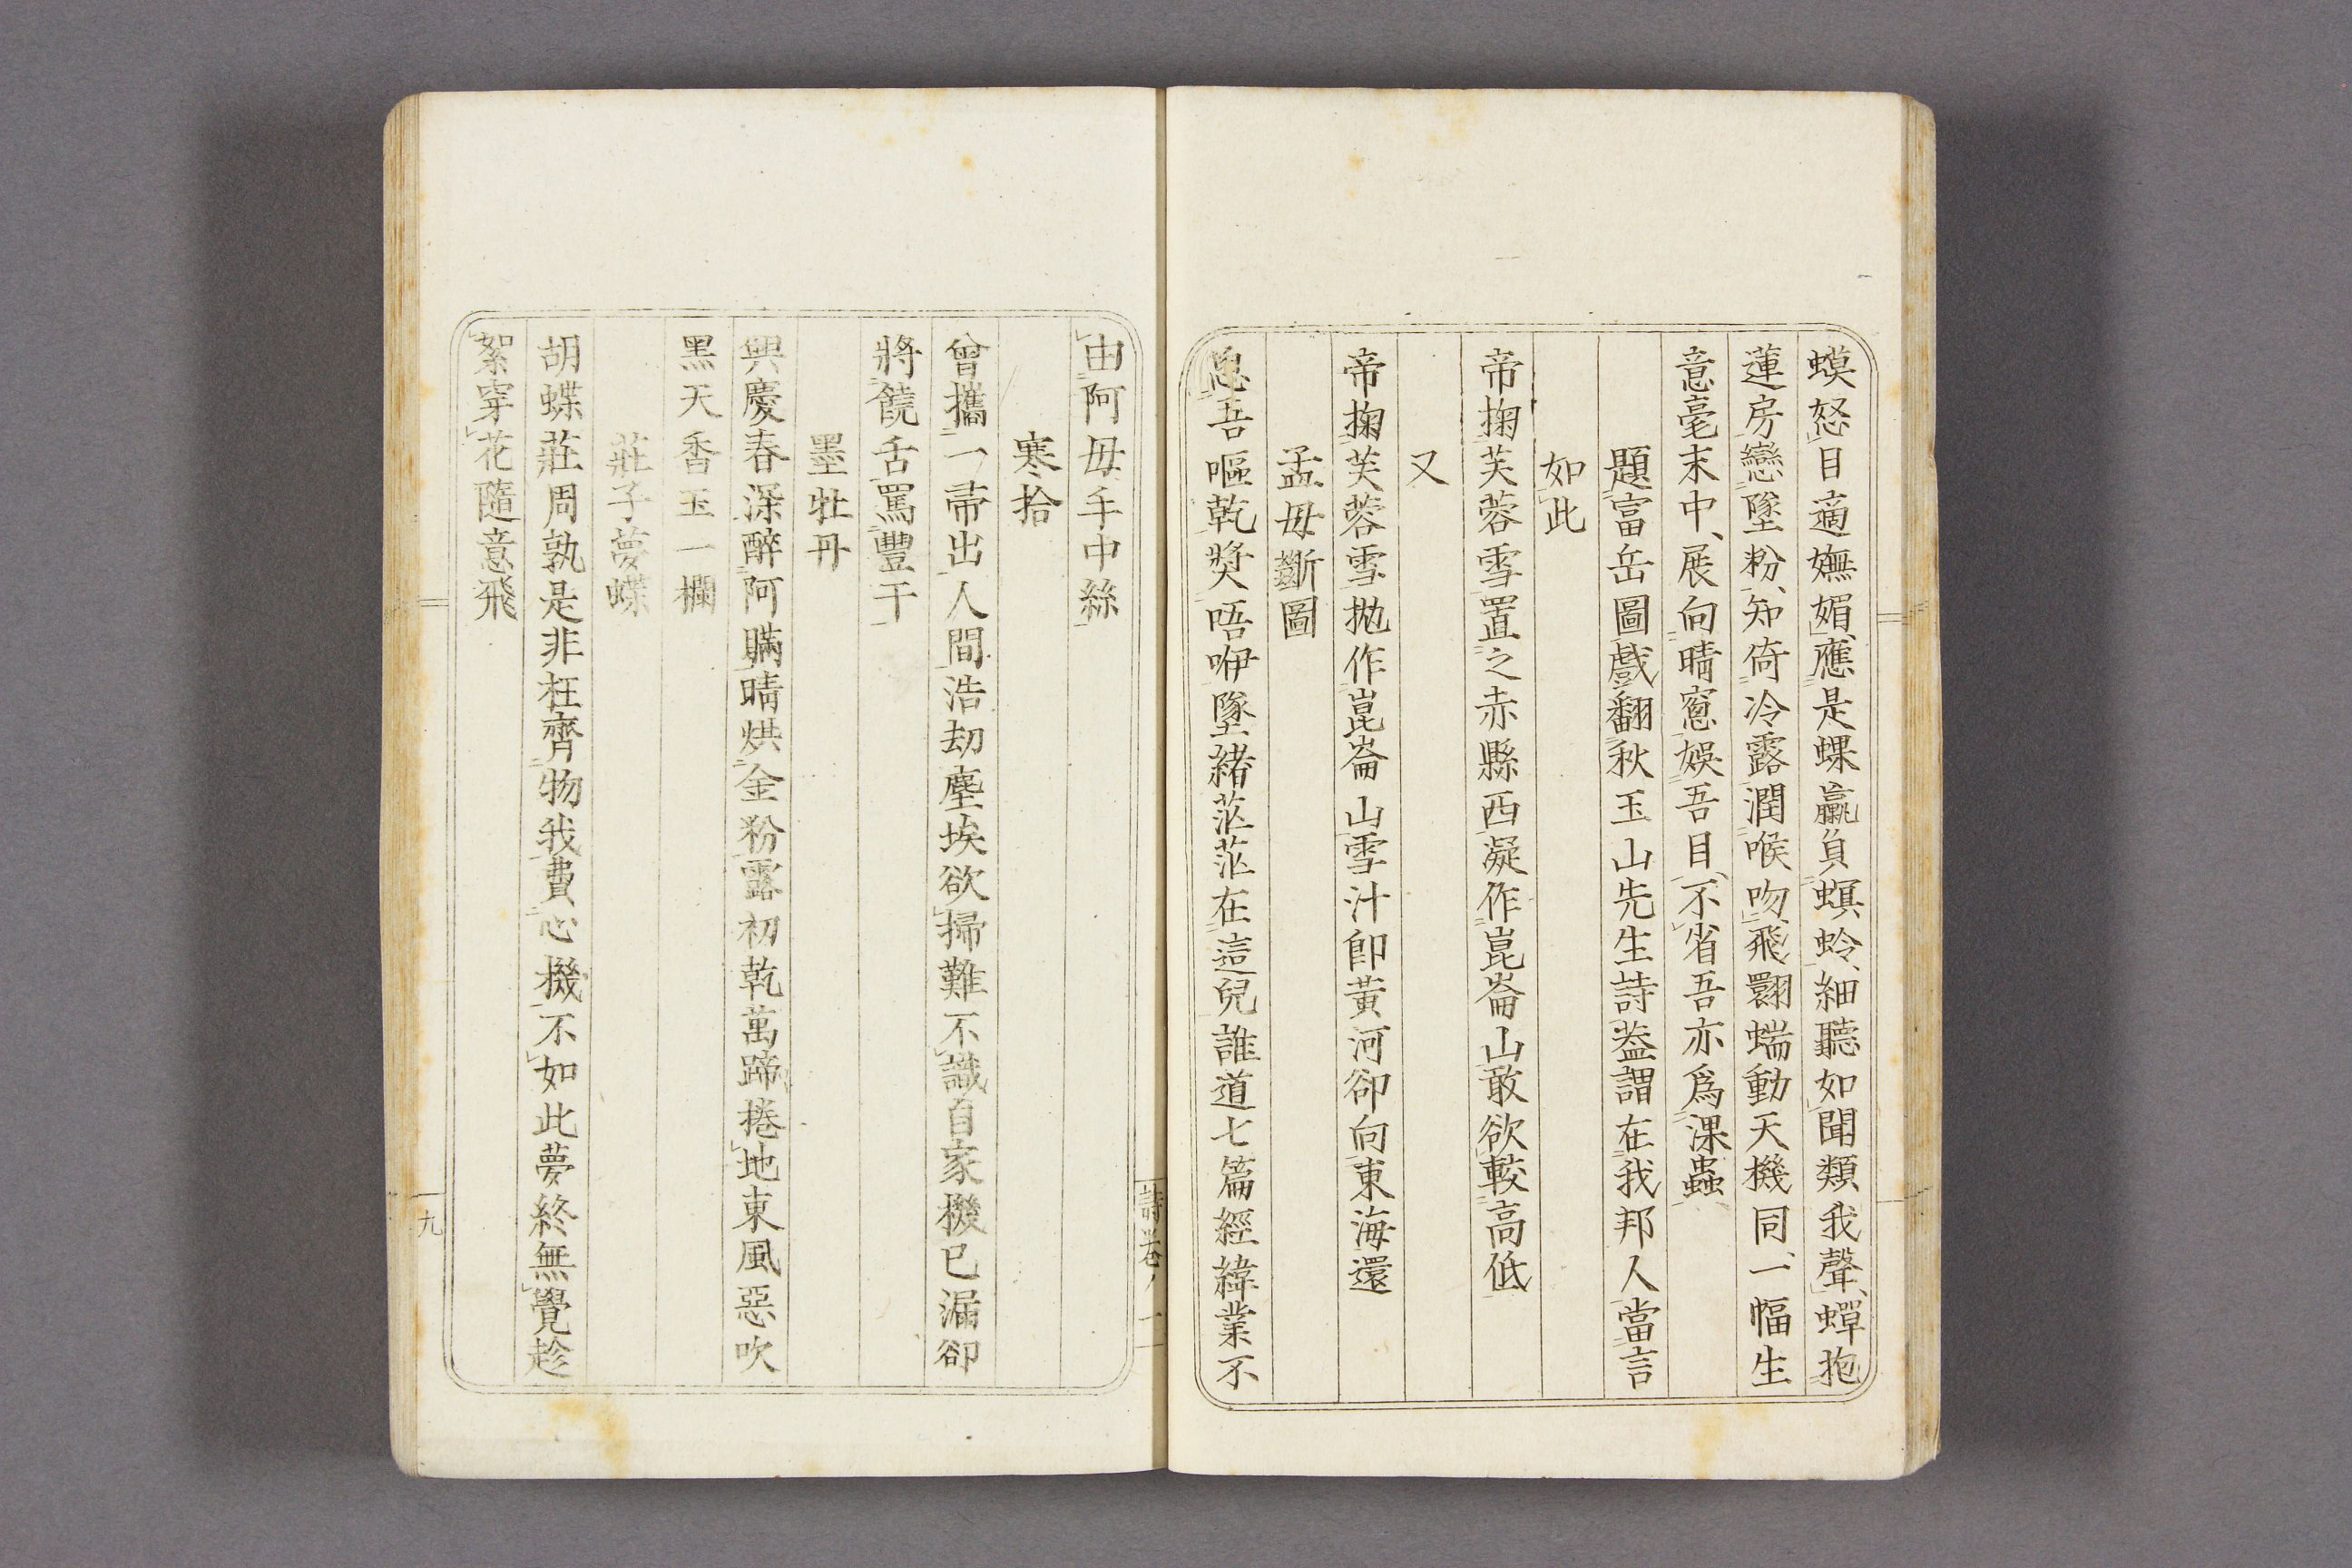 蟆怒目適嫵媚、應是蜾蠃負螟蛉、細聽如聞類我聲、蟬抱
蓮房戀墜粉、知倚冷露潤喉吻、飛翾蝡動天機同、一幅生
意毫末中、展向晴窻娛吾目、不省吾亦爲倮蟲
題富岳圖戲翻秋玉山先生詩葢謂在我邦人當言
如此
帝掬芙蓉雪置之赤縣西凝作崑崙山敢欲較高低
又
帝掬芙蓉雪拋作崑崙山雪汁卽黃河卻向東海還
孟母斷圖
患吾嘔乾獎唔咿墜緖茫茫在這兒誰道七篇經緯業不
由阿母手中絲
寒拾
曾攜一帚出人間浩劫塵埃欲掃難不識自家機已漏卻
將饒舌罵豐干
墨牡丹
興慶春深醉阿瞞晴烘金粉露初乾萬蹄捲地東風惡吹
黑天香玉一欄
莊子夢蝶
胡蝶莊周孰是非枉齊物我費心機不如此夢終無覺趁
絮穿花隨意飛
詩卷ノ一
九